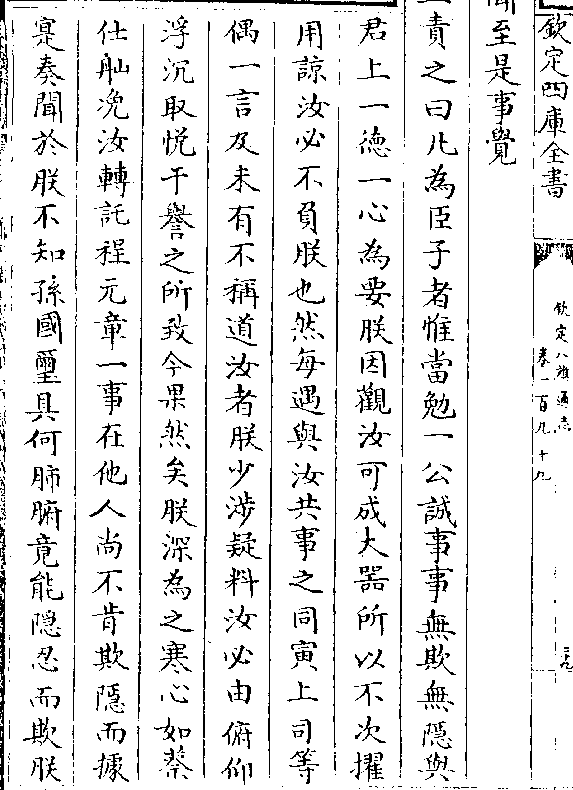 欽定四庫全書
欽定八旗通志
卷一百九十九
聞至是事覺
責之曰凡為臣子者惟當勉一公誠事事無欺無隱與
君上一德一心為要朕因觀汝可成大器所以不次擢
用諒汝必不負朕也然每遇與汝共事之同寅上司等
偶一言及未有不稱道汝者朕少涉疑料汝必由俯仰
浮沉取悅干譽之所致今果然矣朕深為之寒心如蔡
仕舢凂汝轉託程元章一事在他人尚不肯欺隱而據
寔奏聞於朕不知孫國璽具何肺腑竟能隱忍而欺朕